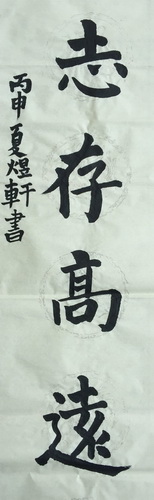 志存高遠
丙申夏煜軒書